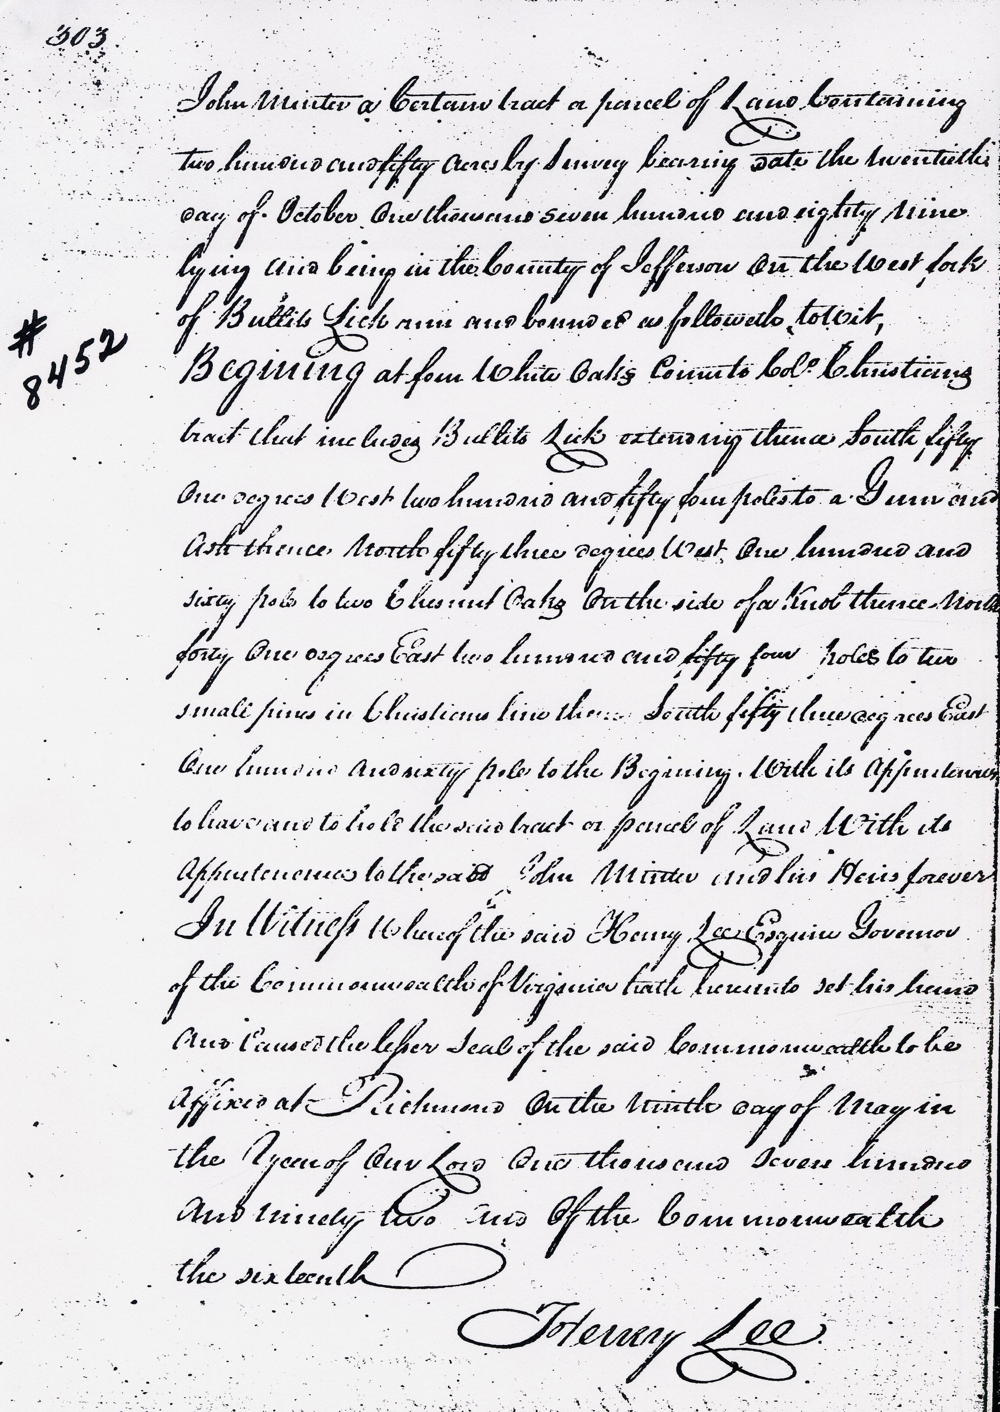 303.
John Minter a Certain tract or parcel of Land Containing
two hundred and fifty acres by Survey bearing date the twentieth
day of October One thousand seven hundred and eighty Nine
lying and being in the County of Jefferson On the West fork
of Bullits Lick run and bounded as followeth, towit,
#
8452
Begining at four White Oaks Corner to Colo. Christians
tract that includes Bullits Lick extending thence South fifty
One degrees West two hundred and fifty four poles to a Gum and
Ash thence North fifty three degrees West, One hundred and
sixty poles to two Chesnut Oaks On the side of a Knob thence North
forty One degrees East two hundred and fifty four poles to two
small pines in Christians line thence South fifty three degrees East
One hundred and sixty poles to the Begining. With its Appurtenances
to have and to hold the said tract or parcel of Land With its
Appurtenances to the said John Minter and his Heirs forever
In Witness Whereof the said Henry Lee Esquire Governor
of the Commonwealth of Virginia hath hereunto set his hand
And Caused the lesser Seal of the said Commonwealth to be
affixed at Richmond On the Ninth day of May in
the Year of Our Lord One thousand Seven hundred
and ninety two and Of the Commonwealth
the sixteenth
Henry Lee